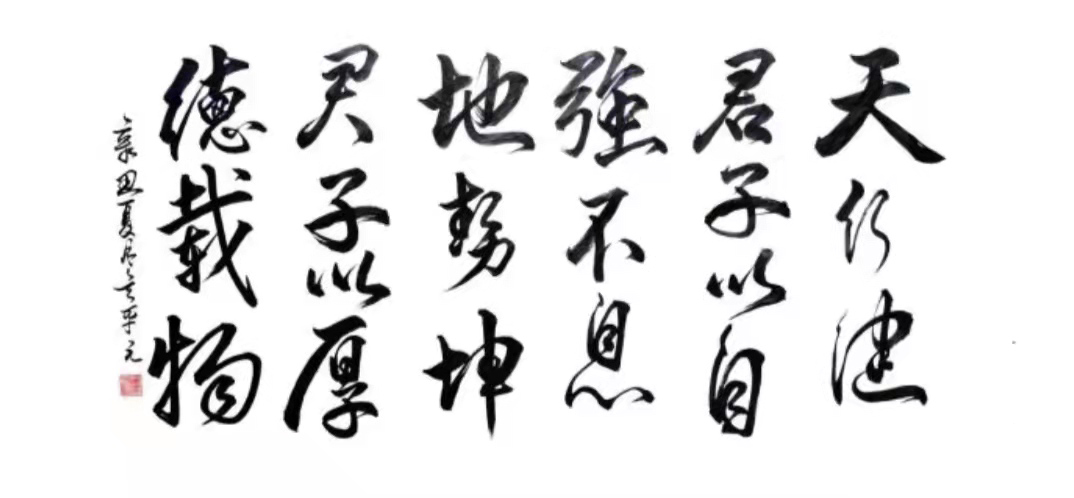 天行健
君子以自
強不息
地勢坤
君子以厚
德載物
辛丑夏月